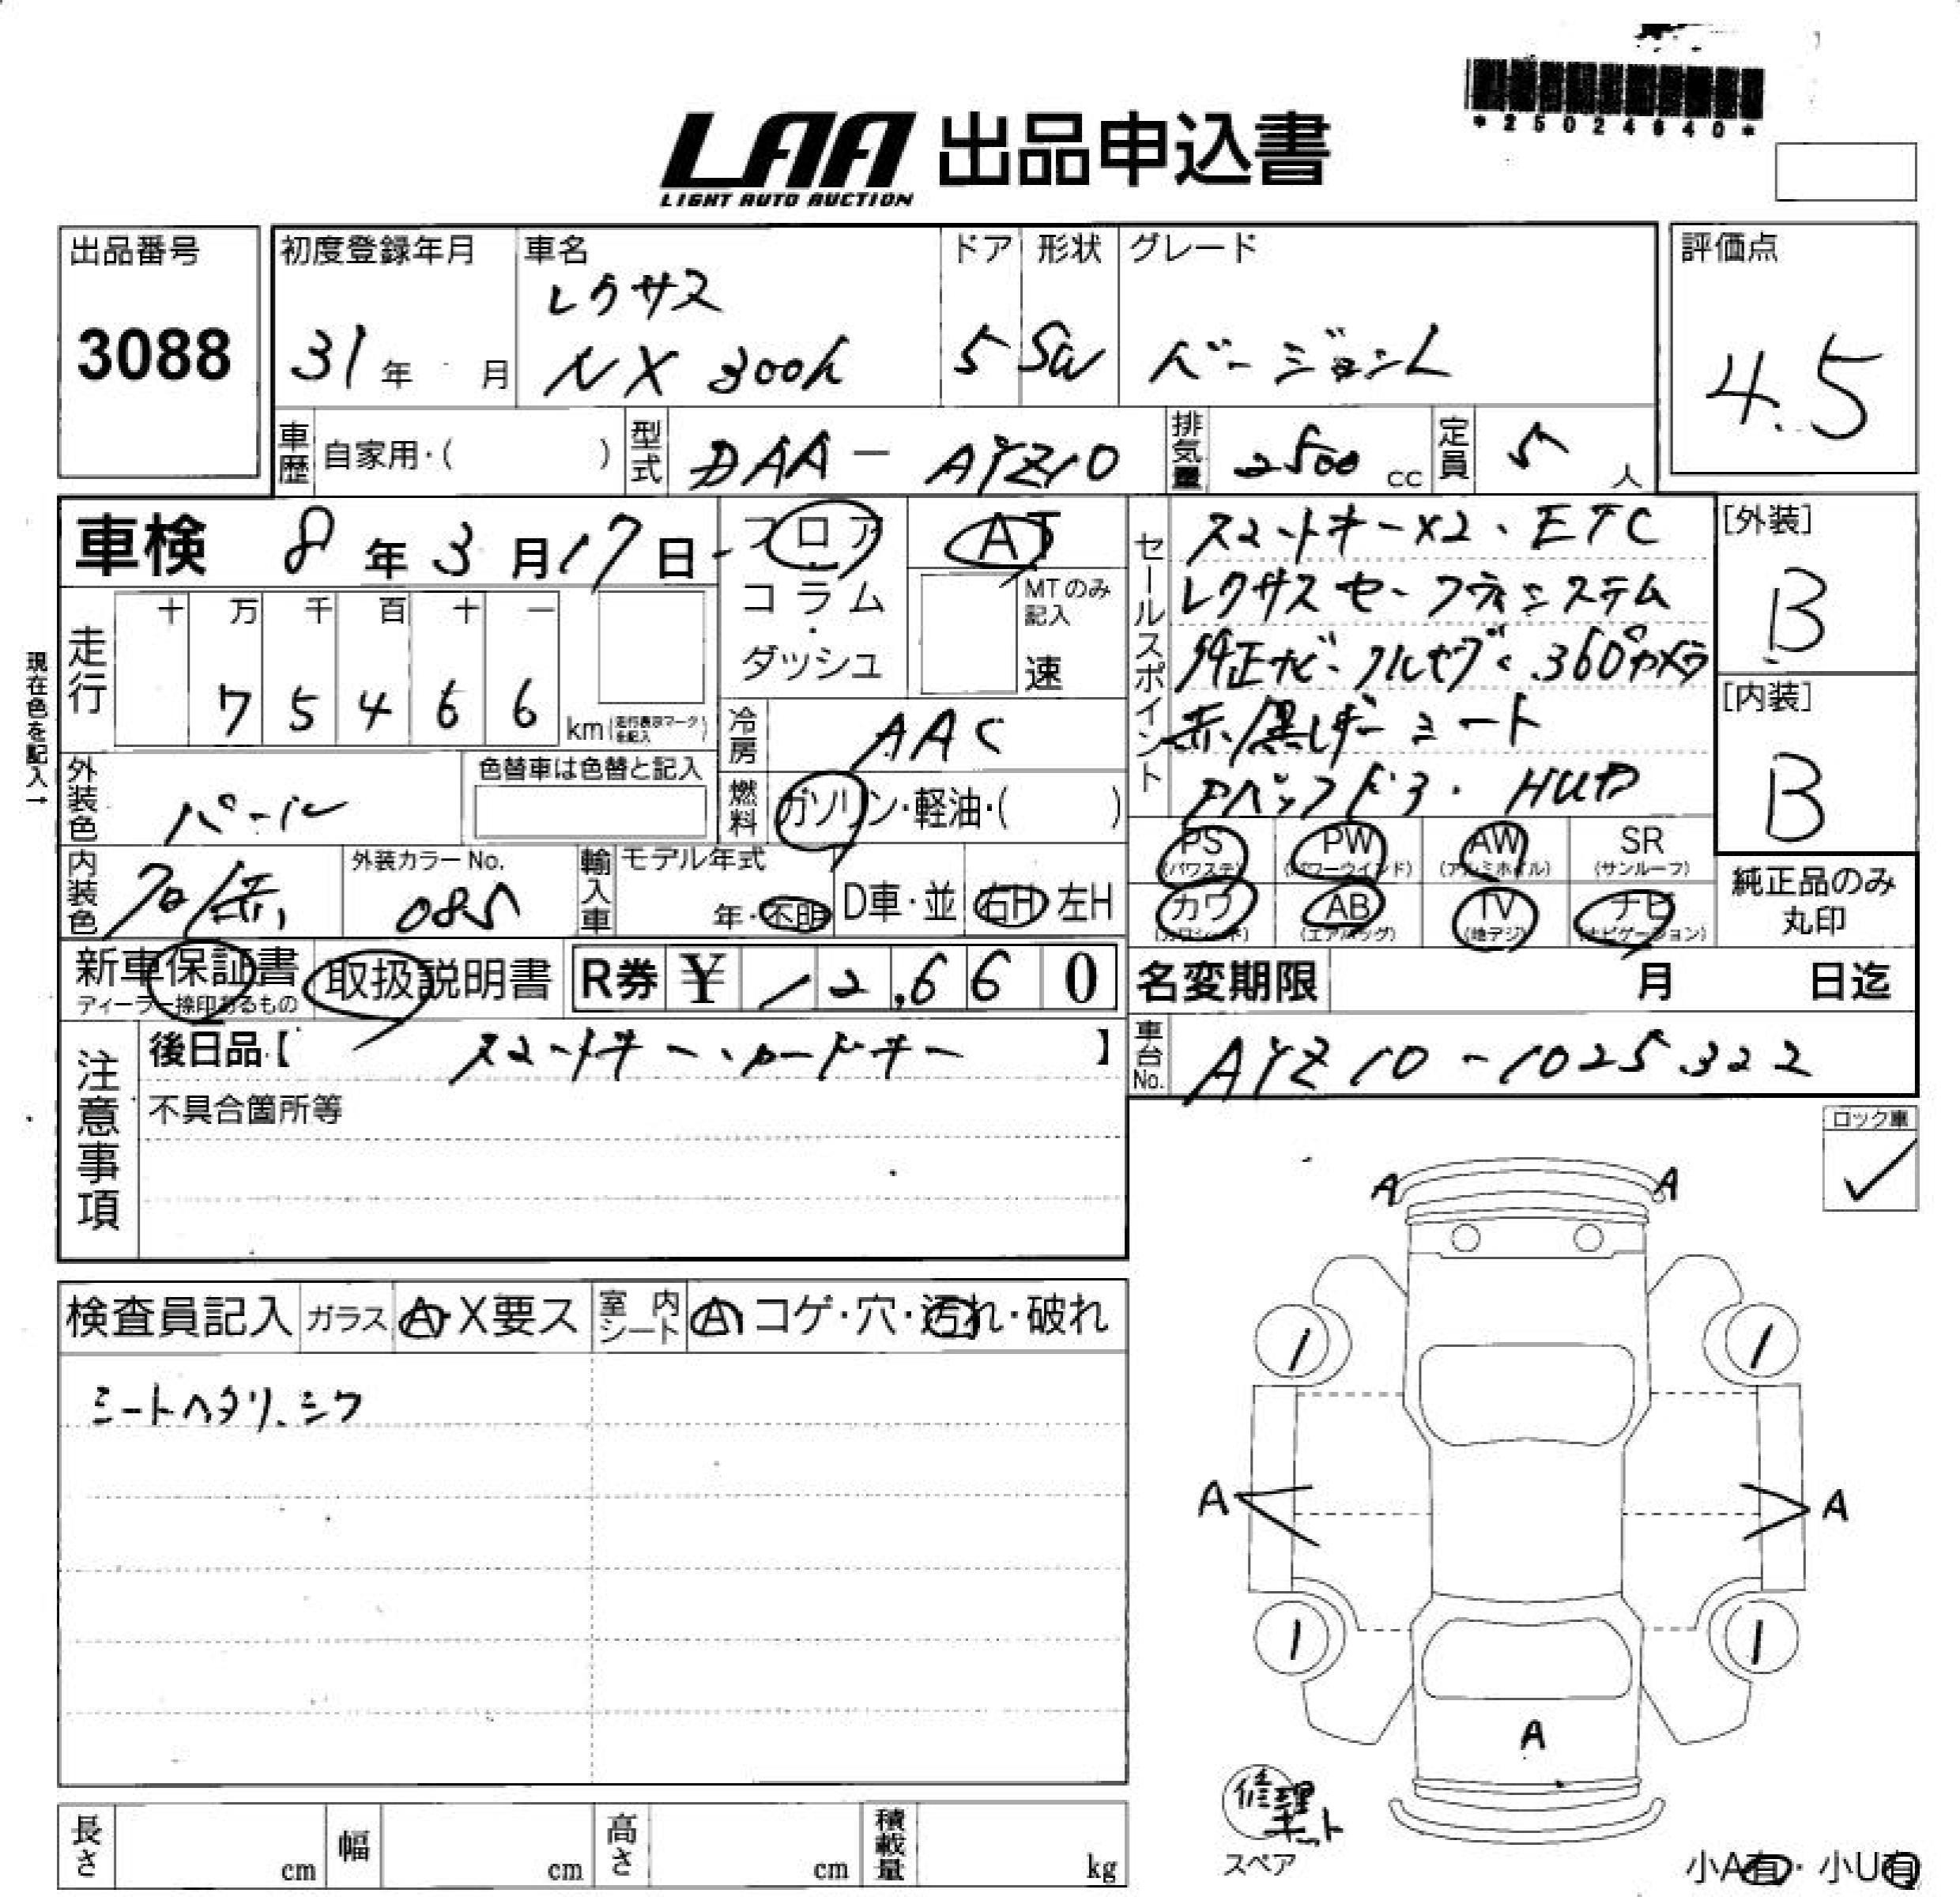 *25024640*
LAA 出品申込書
LIGHT AUTO AUCTION
出品番号
3088
初度登録年月
31年 月
車名
レクサス
NX 300h
ドア
5
形状
SW
グレード
バージョンL
評価点
4.5
車歴 自家用・( )
型式 DAA-AYZ10
排気量 2500 cc
定員 5 人
車検 8年3月17日
フロア・コラム・ダッシュ
AT
MTのみ記入
速
現在色を記入→
走行
十 万 千 百 十 一
7 5 4 6 6 km(走行表示マークを記入)
冷房 AAC
燃料 ガソリン・軽油・( )
外装色 パール
色替車は色替と記入
内装色 クロ/赤
外装カラーNo. 085
輸入車 モデル年式
年・不明 D車・並 右H 左H
セールスポイント
スマートキー×2、ETC
レクサスセーフティシステム
純正ナビ・フルセグ・360°カメラ
赤/黒レザーシート
Pバックドア・HUD
[外装]
B
[内装]
B
PS (パワステ) PW (パワーウインド) AW (アルミホイル) SR (サンルーフ)
カワ (カワシート) AB (エアバッグ) TV (地デジ) ナビ (ナビゲーション)
純正品のみ丸印
新車保証書 ディーラー捺印あるもの
取扱説明書
R券 ¥12,660
名変期限 月 日迄
車台No. AYZ10-1025322
注意事項
後日品【 スマートキー、カードキー 】
不具合箇所等
ロック車
✓
検査員記入 ガラス A・X要ス 室内シート A コゲ・穴・汚れ・破れ
シートヘタリ、シワ
A A
1 1
A A
1 1
A
修理キット
スペア
小A有・小U有
長さ cm 幅 cm 高さ cm 積載量 kg